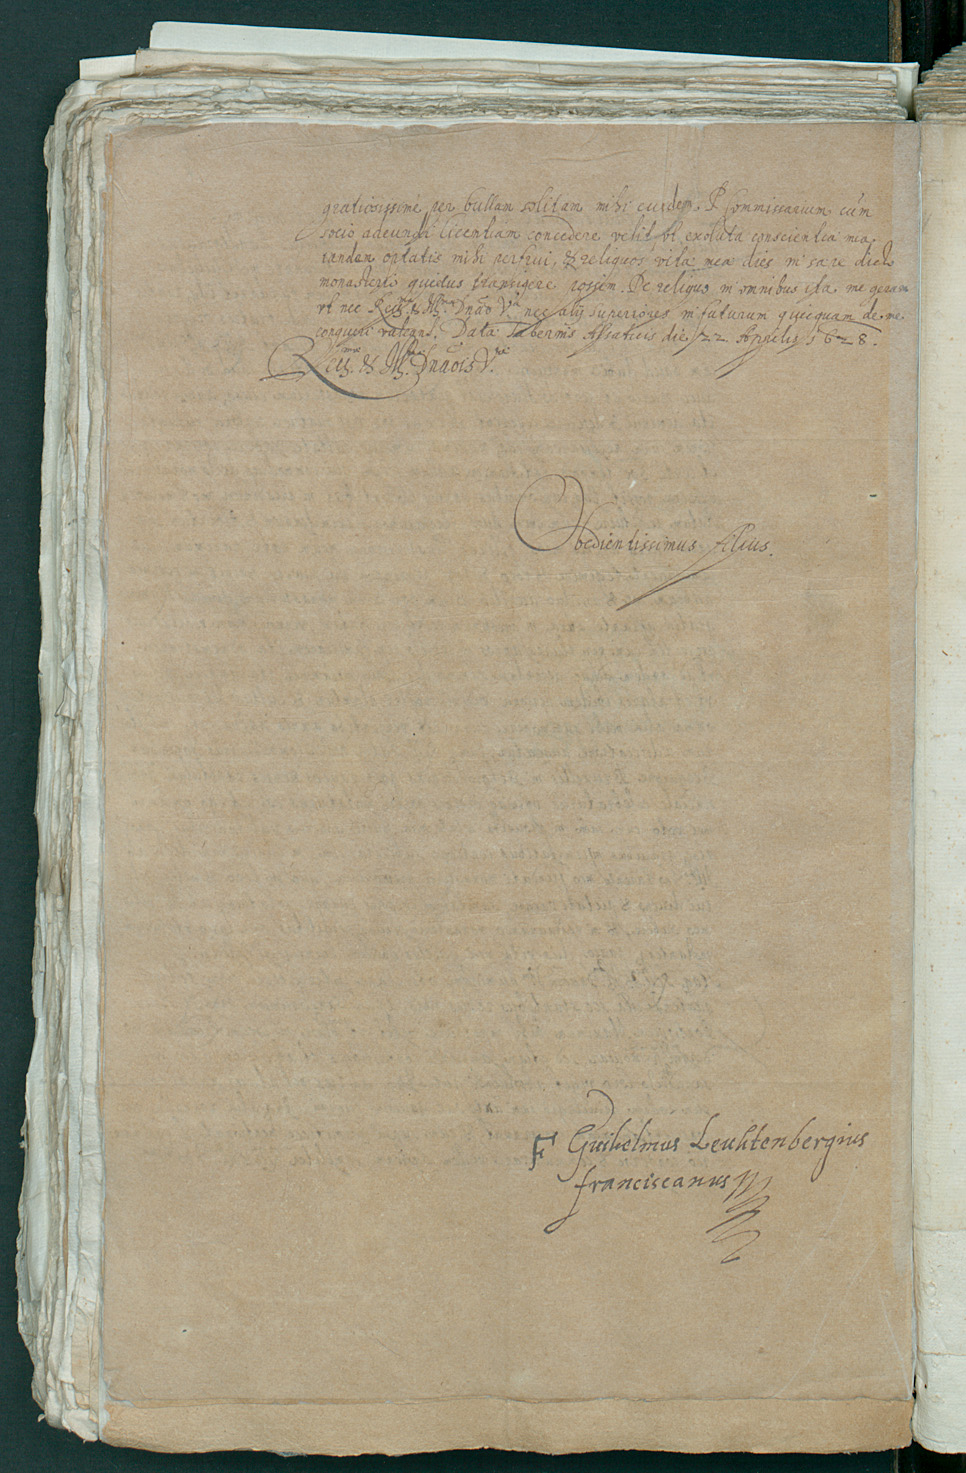 gratiosissime per bullam solitam mihi eundem P. Commissarium cum
socio adeundi licentiam concedere velit vt exoluta conscientia mea
tandem optatis mihi perfrui, & reliquos vitæ meæ dies in sacre dicto
monasterio quietus transigere possim. De reliquo in omnibus ita me geram
vt nec Reu. & Ill. Dnāo V. nec alij superiores in futurum quicquam de me
conqueri valeant. Data Tabernis Alsaticis die 22 Aprilis 1628.
Reu. & Ill. Dnāois V.
Obedientissimus filius.
F Guilielmus Leuhtenbergius
franciscanus